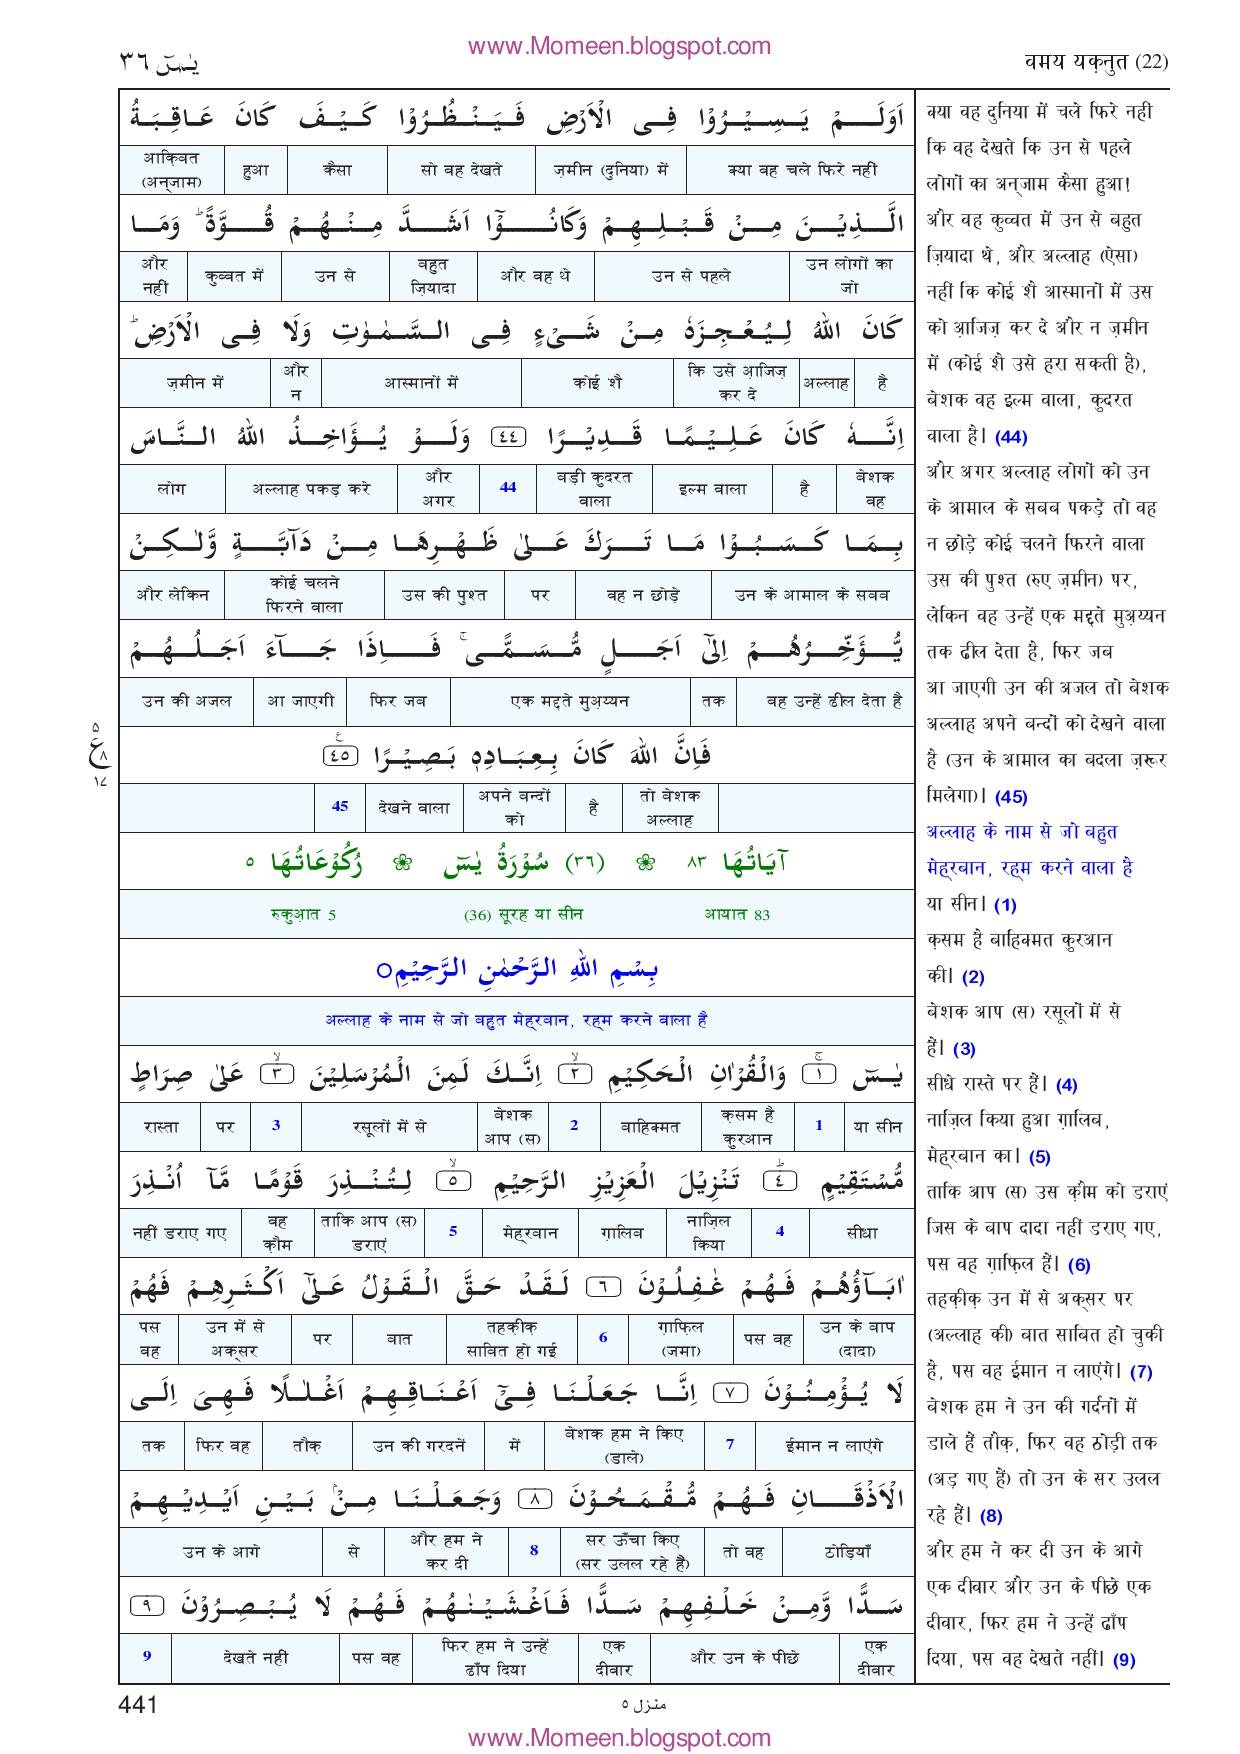 www.Momeen.blogspot.com
वमय यक़्नुत (22)
يٰسٓ ٣٦
اَوَلَمْ يَسِيْرُوْا فِى الْاَرْضِ فَيَنْظُرُوْا كَيْفَ كَانَ عَاقِبَةُ
क्या वह चले फिरे नहीं | ज़मीन (दुनिया) में | सो वह देखते | कैसा | हुआ | आक़िबत (अन्जाम)
الَّذِيْنَ مِنْ قَبْلِهِمْ وَكَانُوْٓا اَشَدَّ مِنْهُمْ قُوَّةً ؕ وَمَا
उन लोगों का जो | उन से पहले | और वह थे | बहुत ज़ियादा | उन से | कुव्वत में | और नहीं
كَانَ اللّٰهُ لِيُعْجِزَهٗ مِنْ شَىْءٍ فِى السَّمٰوٰتِ وَلَا فِى الْاَرْضِ ؕ
है | अल्लाह | कि उसे आ़जिज़ कर दे | कोई शै | आस्मानों में | और न | ज़मीन में
اِنَّهٗ كَانَ عَلِيْمًا قَدِيْرًا ٤٤ وَلَوْ يُؤَاخِذُ اللّٰهُ النَّاسَ
बेशक वह | है | इल्म वाला | बड़ी कुदरत वाला | 44 | और अगर | अल्लाह पकड़ करे | लोग
بِمَا كَسَبُوْا مَا تَرَكَ عَلٰى ظَهْرِهَا مِنْ دَآبَّةٍ وَّلٰكِنْ
उन के आमाल के सबब | वह न छोड़े | पर | उस की पुश्त | कोई चलने फिरने वाला | और लेकिन
يُّؤَخِّرُهُمْ اِلٰٓى اَجَلٍ مُّسَمًّى ۚ فَاِذَا جَآءَ اَجَلُهُمْ
वह उन्हें ढील देता है | तक | एक मद्दते मुअ़य्यन | फिर जब | आ जाएगी | उन की अजल
فَاِنَّ اللّٰهَ كَانَ بِعِبَادِهٖ بَصِيْرًا ٤٥
तो बेशक अल्लाह | है | अपने बन्दों को | देखने वाला | 45
٥ ع ٨ ١٧
آيَاتُهَا ٨٣ ❀ (٣٦) سُوْرَةُ يٰسٓ ❀ رُكُوْعَاتُهَا ٥
आयात 83 (36) सूरह या सीन रुकुआ़त 5
بِسْمِ اللّٰهِ الرَّحْمٰنِ الرَّحِيْمِ○
अल्लाह के नाम से जो बहुत मेह्रबान, रह्म करने वाला है
يٰسٓ ۚ ١ وَالْقُرْاٰنِ الْحَكِيْمِ ۙ ٢ اِنَّكَ لَمِنَ الْمُرْسَلِيْنَ ۙ ٣ عَلٰى صِرَاطٍ
या सीन | 1 | क़सम है कुरआन | बाहिक्मत | 2 | बेशक आप (स) | रसूलों में से | 3 | पर | रास्ता
مُّسْتَقِيْمٍ ؕ ٤ تَنْزِيْلَ الْعَزِيْزِ الرَّحِيْمِ ۙ ٥ لِتُنْذِرَ قَوْمًا مَّآ اُنْذِرَ
सीधा | 4 | नाज़िल किया | ग़ालिब | मेह्रबान | 5 | ताकि आप (स) डराएं | वह क़ौम | नहीं डराए गए
اٰبَآؤُهُمْ فَهُمْ غٰفِلُوْنَ ٦ لَقَدْ حَقَّ الْقَوْلُ عَلٰٓى اَكْثَرِهِمْ فَهُمْ
उन के बाप (दादा) | पस वह | ग़ाफ़िल (जमा) | 6 | तहक़ीक़ साबित हो गई | बात | पर | उन में से अक्सर | पस वह
لَا يُؤْمِنُوْنَ ٧ اِنَّا جَعَلْنَا فِىْٓ اَعْنَاقِهِمْ اَغْلٰلًا فَهِىَ اِلَى
ईमान न लाएंगे | 7 | बेशक हम ने किए (डाले) | में | उन की गरदनें | तौक़ | फिर वह | तक
الْاَذْقَانِ فَهُمْ مُّقْمَحُوْنَ ٨ وَجَعَلْنَا مِنْۢ بَيْنِ اَيْدِيْهِمْ
ठोड़ियाँ | तो वह | सर ऊँचा किए (सर उलल रहे हैं) | 8 | और हम ने कर दी | से | उन के आगे
سَدًّا وَّمِنْ خَلْفِهِمْ سَدًّا فَاَغْشَيْنٰهُمْ فَهُمْ لَا يُبْصِرُوْنَ ٩
एक दीवार | और उन के पीछे | एक दीवार | फिर हम ने उन्हें ढाँप दिया | पस वह | देखते नहीं | 9
क्या वह दुनिया में चले फिरे नहीं
कि वह देखते कि उन से पहले
लोगों का अन्जाम कैसा हुआ!
और वह कुव्वत में उन से बहुत
ज़ियादा थे, और अल्लाह (ऐसा)
नहीं कि कोई शै आस्मानों में उस
को आ़जिज़ कर दे और न ज़मीन
में (कोई शै उसे हरा सकती है),
बेशक वह इल्म वाला, कुदरत
वाला है। (44)
और अगर अल्लाह लोगों को उन
के आमाल के सबब पकड़े तो वह
न छोड़े कोई चलने फिरने वाला
उस की पुश्त (रुए ज़मीन) पर,
लेकिन वह उन्हें एक मद्दते मुअ़य्यन
तक ढील देता है, फिर जब
आ जाएगी उन की अजल तो बेशक
अल्लाह अपने बन्दों को देखने वाला
है (उन के आमाल का बदला ज़रूर
मिलेगा)। (45)
अल्लाह के नाम से जो बहुत
मेह्रबान, रह्म करने वाला है
या सीन। (1)
क़सम है बाहिक्मत कुरआन
की। (2)
बेशक आप (स) रसूलों में से
हैं। (3)
सीधे रास्ते पर हैं। (4)
नाज़िल किया हुआ ग़ालिब,
मेह्रबान का। (5)
ताकि आप (स) उस क़ौम को डराएं
जिस के बाप दादा नहीं डराए गए,
पस वह ग़ाफ़िल हैं। (6)
तहक़ीक़ उन में से अक्सर पर
(अल्लाह की) बात साबित हो चुकी
है, पस वह ईमान न लाएंगे। (7)
बेशक हम ने उन की गर्दनों में
डाले हैं तौक़, फिर वह ठोड़ी तक
(अड़ गए हैं) तो उन के सर उलल
रहे हैं। (8)
और हम ने कर दी उन के आगे
एक दीवार और उन के पीछे एक
दीवार, फिर हम ने उन्हें ढाँप
दिया, पस वह देखते नहीं। (9)
441
منزل ٥
www.Momeen.blogspot.com